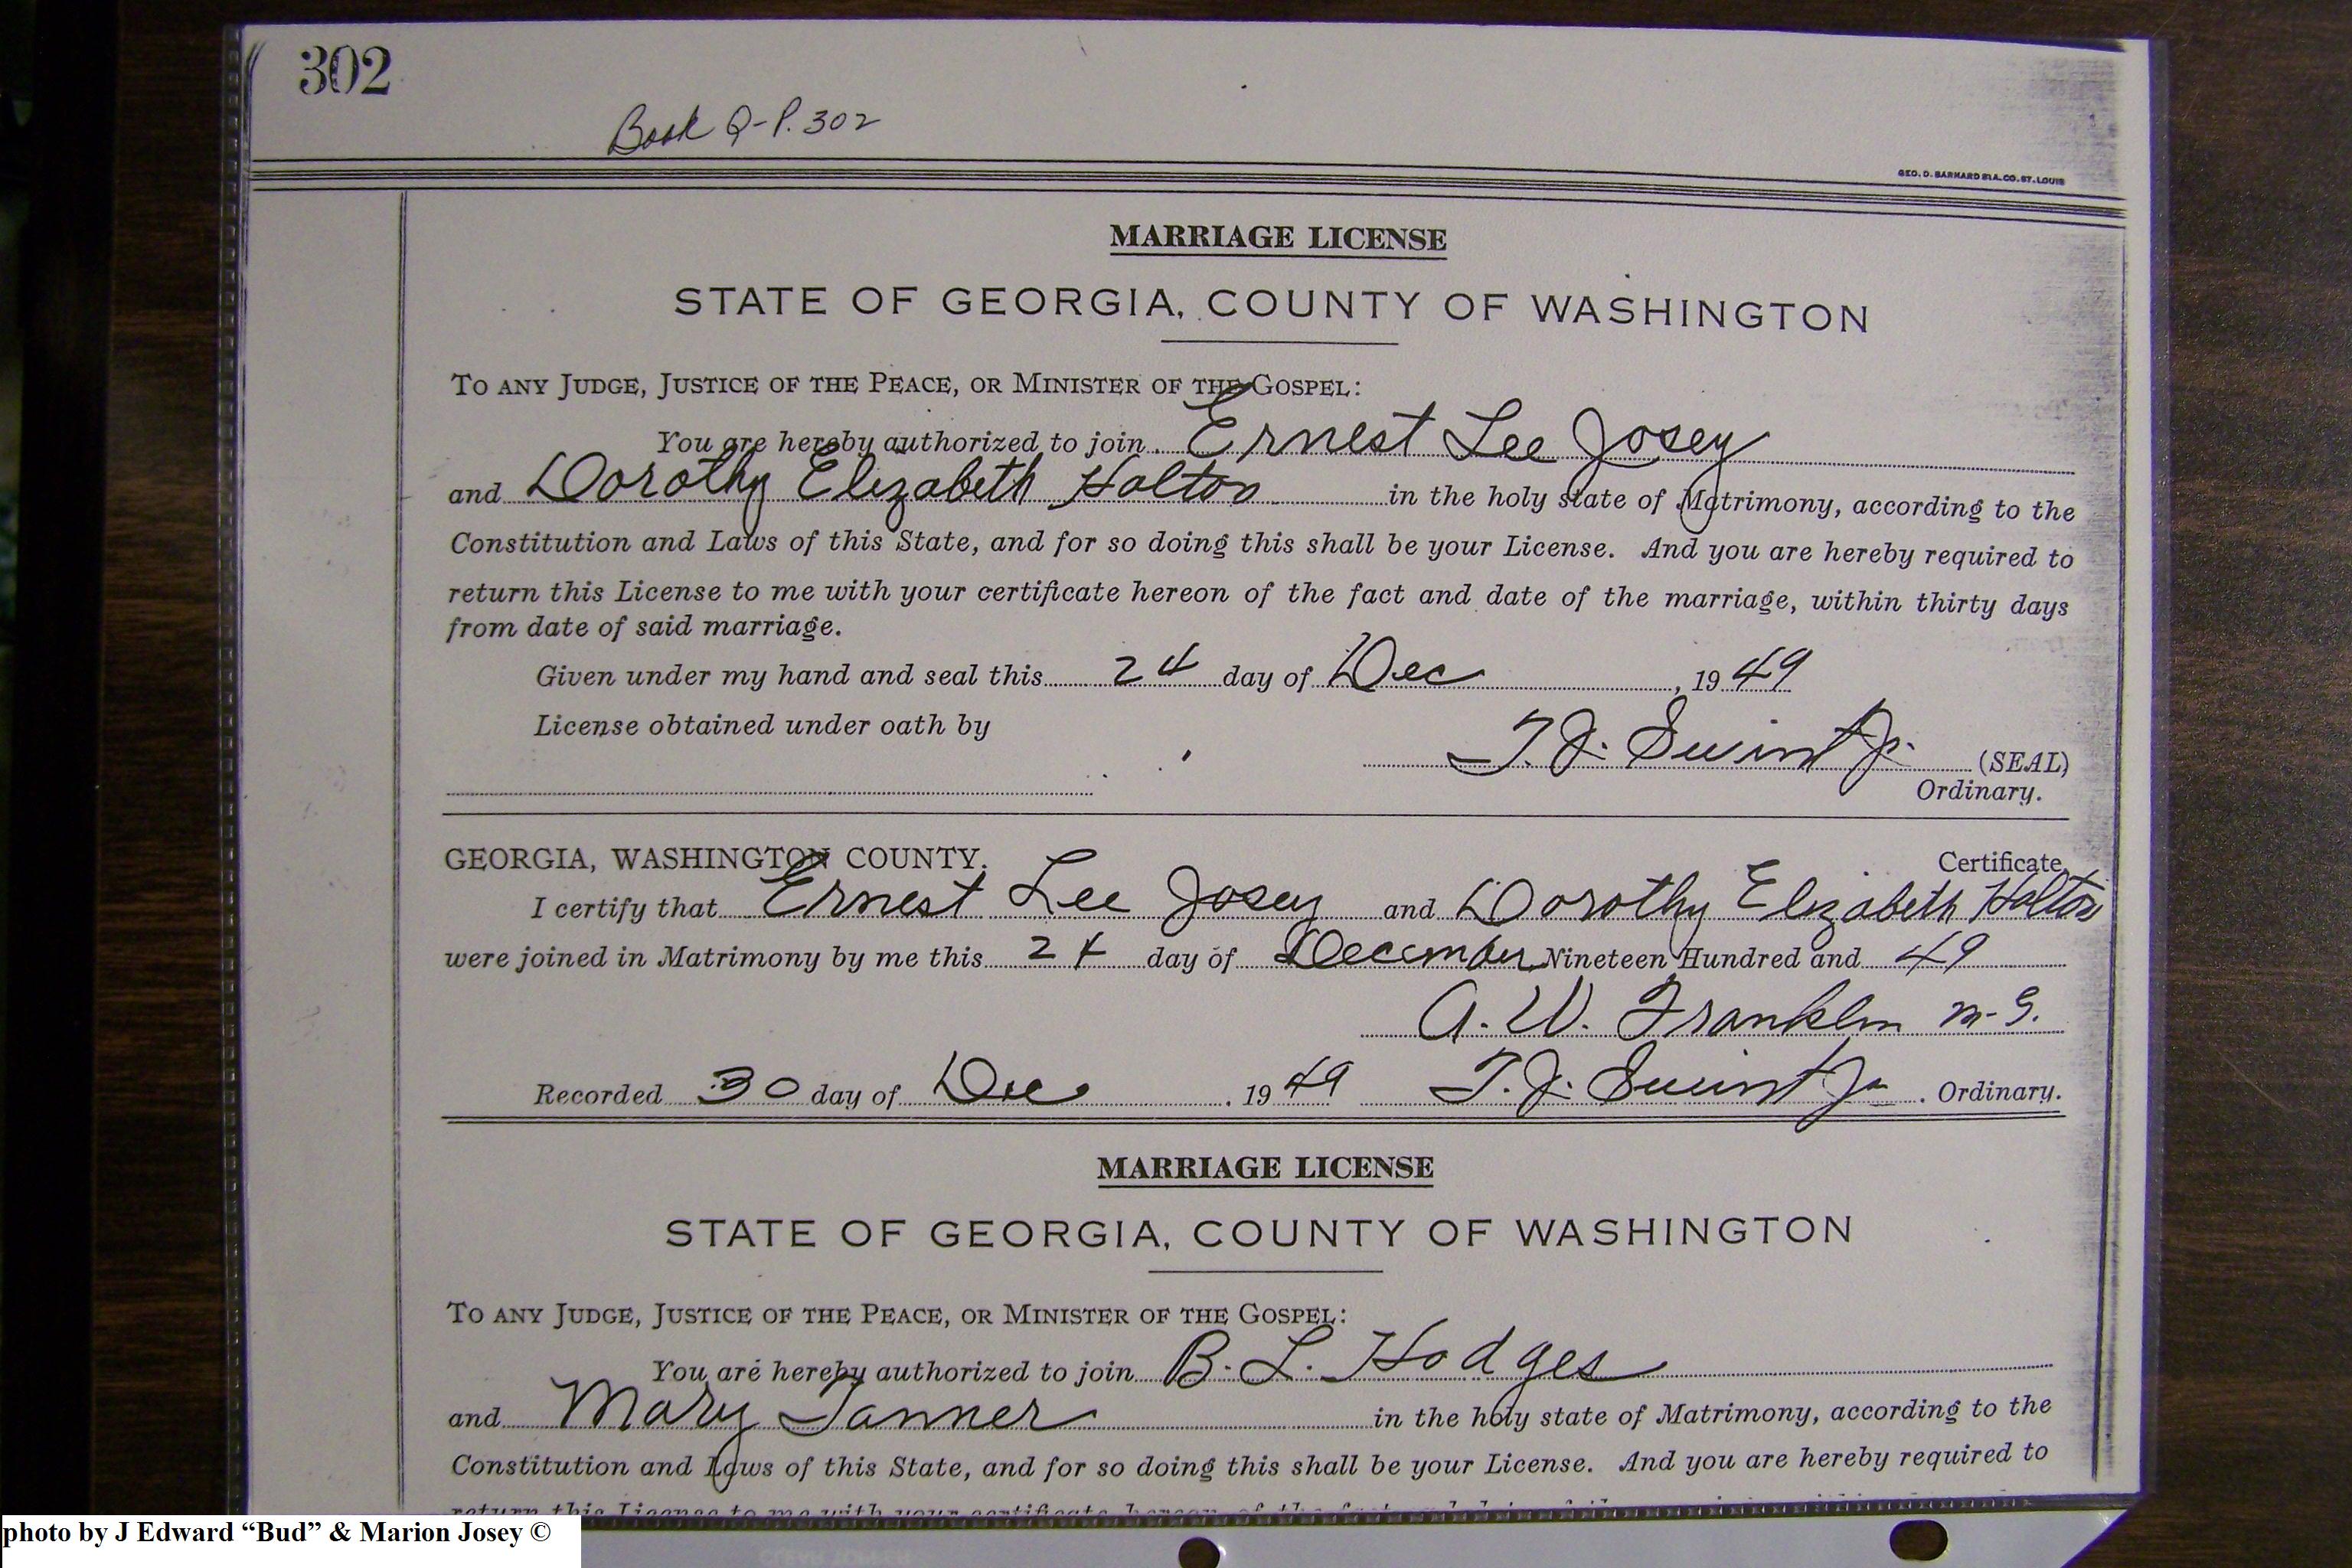 302
Book Q-P. 302
GEO. D. BARNARD STA. CO. ST. LOUIS
MARRIAGE LICENSE
STATE OF GEORGIA, COUNTY OF WASHINGTON
TO ANY JUDGE, JUSTICE OF THE PEACE, OR MINISTER OF THE GOSPEL:
You are hereby authorized to join Ernest Lee Josey
and Dorothy Elizabeth Holton in the holy state of Matrimony, according to the
Constitution and Laws of this State, and for so doing this shall be your License. And you are hereby required to
return this License to me with your certificate hereon of the fact and date of the marriage, within thirty days
from date of said marriage.
Given under my hand and seal this 24 day of Dec, 1949
License obtained under oath by
T. J. Swint Jr. (SEAL)
Ordinary.
GEORGIA, WASHINGTON COUNTY. Certificate
I certify that Ernest Lee Josey and Dorothy Elizabeth Holton
were joined in Matrimony by me this 24 day of December Nineteen Hundred and 49
A. W. Franklin M-G.
Recorded 30 day of Dec, 1949 T. J. Swint Jr. Ordinary.
MARRIAGE LICENSE
STATE OF GEORGIA, COUNTY OF WASHINGTON
TO ANY JUDGE, JUSTICE OF THE PEACE, OR MINISTER OF THE GOSPEL:
You are hereby authorized to join B. L. Hodges
and Mary Tanner in the holy state of Matrimony, according to the
Constitution and Laws of this State, and for so doing this shall be your License. And you are hereby required to
return this License to me with your certificate hereon of the fact
photo by J Edward “Bud” & Marion Josey ©